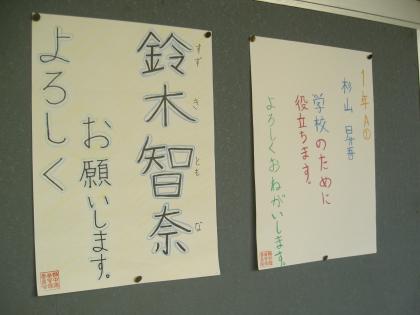 鈴木智奈
すずきともな
お願いします。
よろしく
1年A①
杉山昇吾
学校のために
役立ちます。
よろしくおねがいします。